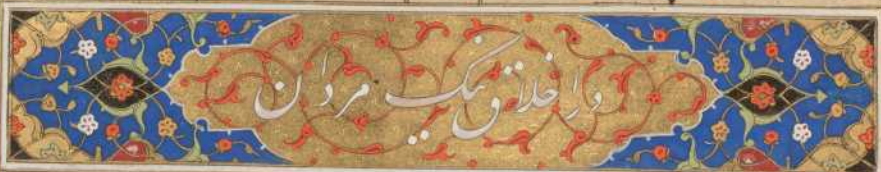 در اخلاق نیک مردان